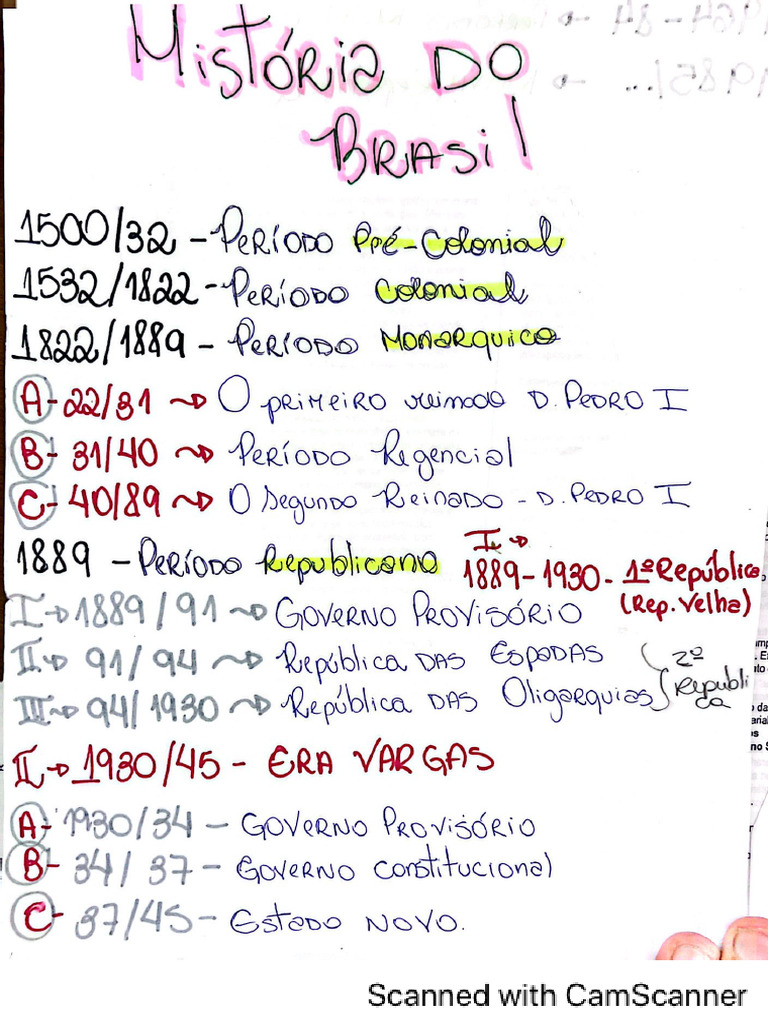 História do
Brasil
1500/32 - Período Pré-Colonial
1532/1822 - Período Colonial
1822/1889 - Período Monarquico
A- 22/31 → O primeiro reinado D. Pedro I
B- 31/40 → Período Regencial
C- 40/89 → O Segundo Reinado - D. Pedro I
1889 - Período Republicano
I → 1889-1930 - 1º República
(Rep. Velha)
I → 1889/91 → Governo Provisório
II → 91/94 → República das Espadas
III → 94/1930 → República das Oligarquias
2º
República
II → 1930/45 - ERA VARGAS
A- 1930/34 - Governo Provisório
B- 34/37 - Governo Constitucional
C- 37/45 - Estado Novo.
Scanned with CamScanner